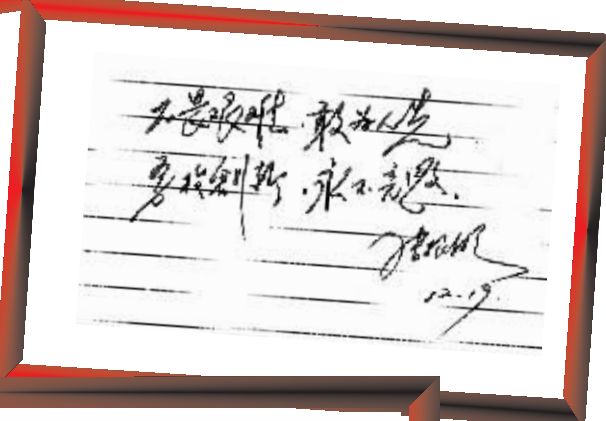 不畏艰难,敢为人先
勇于创新,永不言败.
12.19.